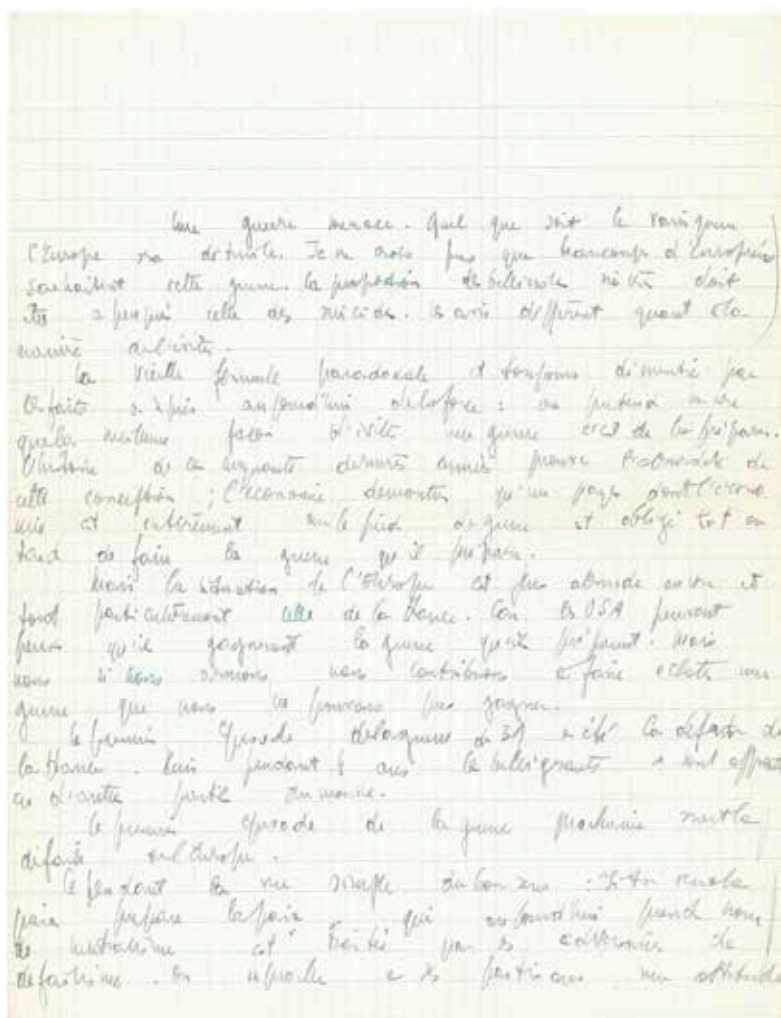 Une guerre menace. Quel que soit le vainqueur
l'Europe sera détruite. Je ne crois pas que beaucoup d'Européens
souhaitent cette guerre. La proportion des bellicistes doit
être à peu près celle des suicides. Les avis diffèrent quant à la
manière de l'éviter.
La vieille formule paradoxale et toujours démentie par
les faits aujourd'hui de la force : on prétend encore
que la meilleure façon d'éviter une guerre c'est de la préparer.
L'histoire de ces cinquante dernières années prouve l'absurdité de
cette conception ; l'économie démontre qu'un pays dont l'écono
mie est entièrement sur le pied de guerre est obligé tôt ou
tard de faire la guerre qu'il prépare.
Mais la situation de l'Europe est plus absurde encore et
tout particulièrement celle de la France. Car les USA peuvent
penser qu'ils gagneront la guerre qu'ils préparent. Mais
nous si nous armons nous contribuons à faire éclater une
guerre que nous ne pouvons pas gagner.
Le premier épisode de la guerre de 39 a été la défaite de
la France. Puis pendant 4 ans les belligérants se sont affrontés
en d'autres parties du monde.
Le premier épisode de la guerre prochaine sera la
défaite de l'Europe.
Cependant la vue simple du bon sens : si tu veux la
paix prépare la paix qui aujourd'hui prend nom
de neutralisme est traitée par ses adversaires de
défaitisme. On reproche à ses partisans une attitude